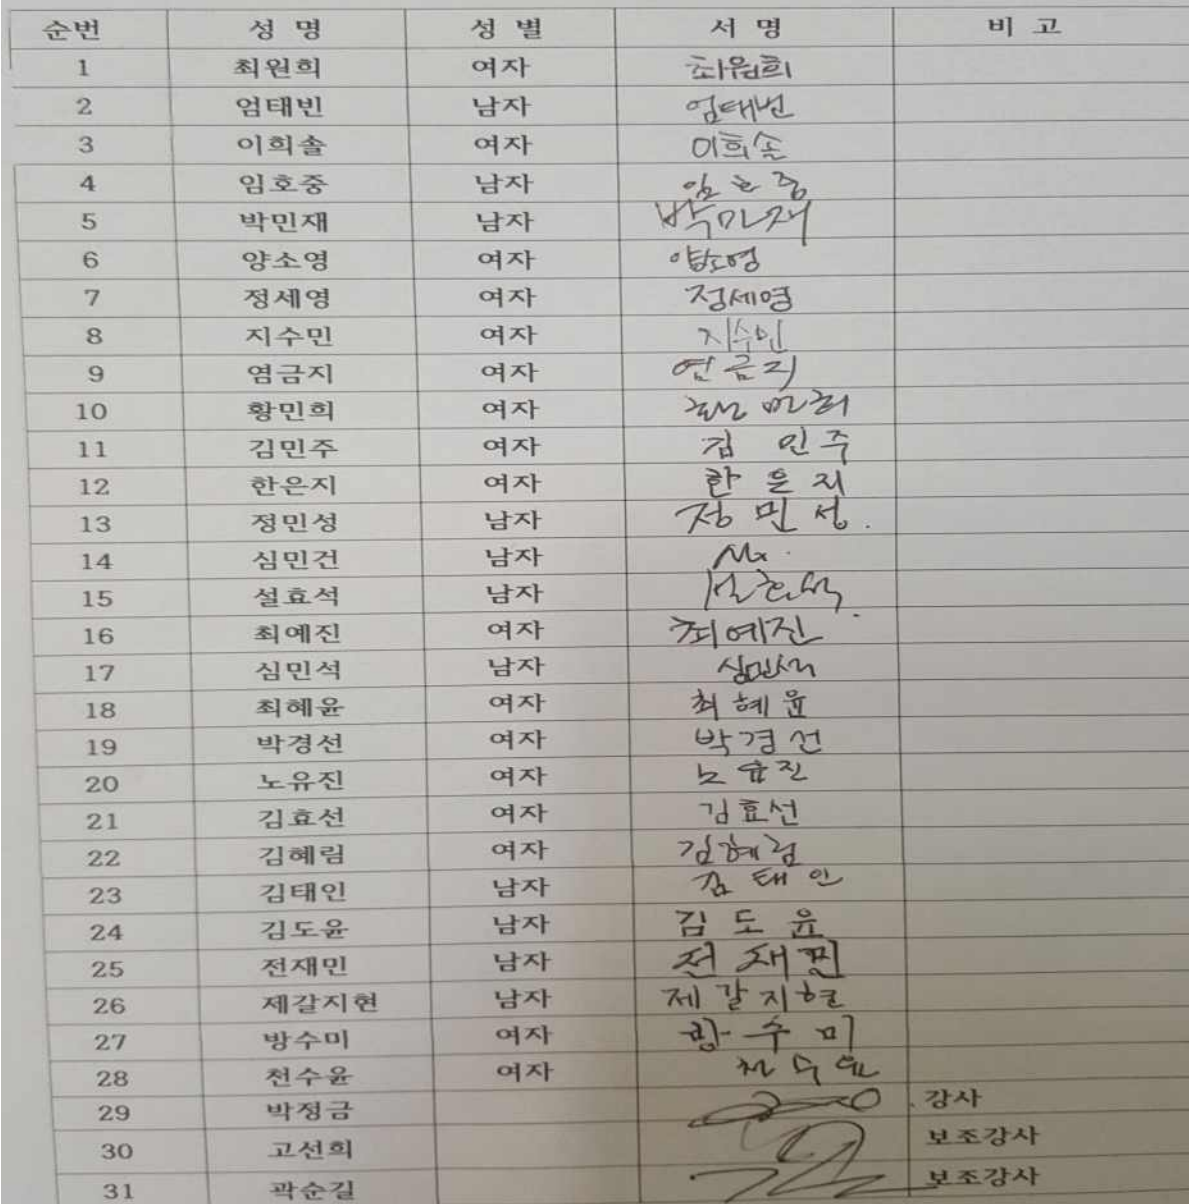 순번 성명 성별 서명 비고
1 최원희 여자 최원희
2 엄태빈 남자 엄태빈
3 이희솔 여자 이희솔
4 임호중 남자 임호중
5 박민재 남자 박민재
6 양소영 여자 양소영
7 정세영 여자 정세영
8 지수민 여자 지수민
9 염금지 여자 염금지
10 황민희 여자
11 김민주 여자 김민주
12 한은지 여자 한은지
13 정민성 남자 정민성.
14 심민건 남자
15 설효석 남자
16 최예진 여자 최예진
17 심민석 남자 심민석
18 최혜윤 여자 최혜윤
19 박경선 여자 박경선
20 노유진 여자 노유진
21 김효선 여자 김효선
22 김혜림 여자 김혜림
23 김태인 남자 김태인
24 김도윤 남자 김도윤
25 전재민 남자 전재민
26 제갈지현 남자 제갈지현
27 방수미 여자 방수미
28 천수윤 여자 천수윤
29 박정금 강사
30 고선희 보조강사
31 곽순길 보조강사